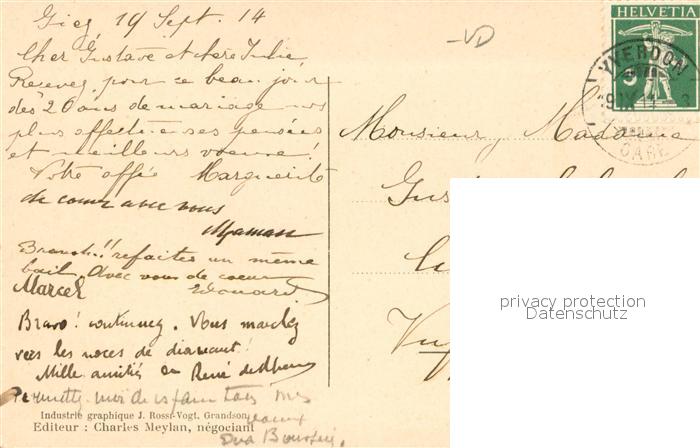 Giez 19 Sept. 14
Cher Gustave et chère Julie,
Recevez pour ce beau jour
des 20 ans de mariage nos
plus affectueuses pensées
et meilleurs voeux!
Votre affée Marguerite
de cœur avec vous
Maman
Bravo!! refaites un même
bail. Avec vous de coeur
Marcel Edouard
Bravo! continuez. Vous marchez
vers les noces de diamant!
Mille amitiés de René
Permettez-moi de
Industrie graphique J. Ross-Vogt, Grandson
Editeur : Charles Meylan, négociant
VD
HELVETIA
5
YVERDON
GARE
Monsieur, Madame
privacy protection
Datenschutz